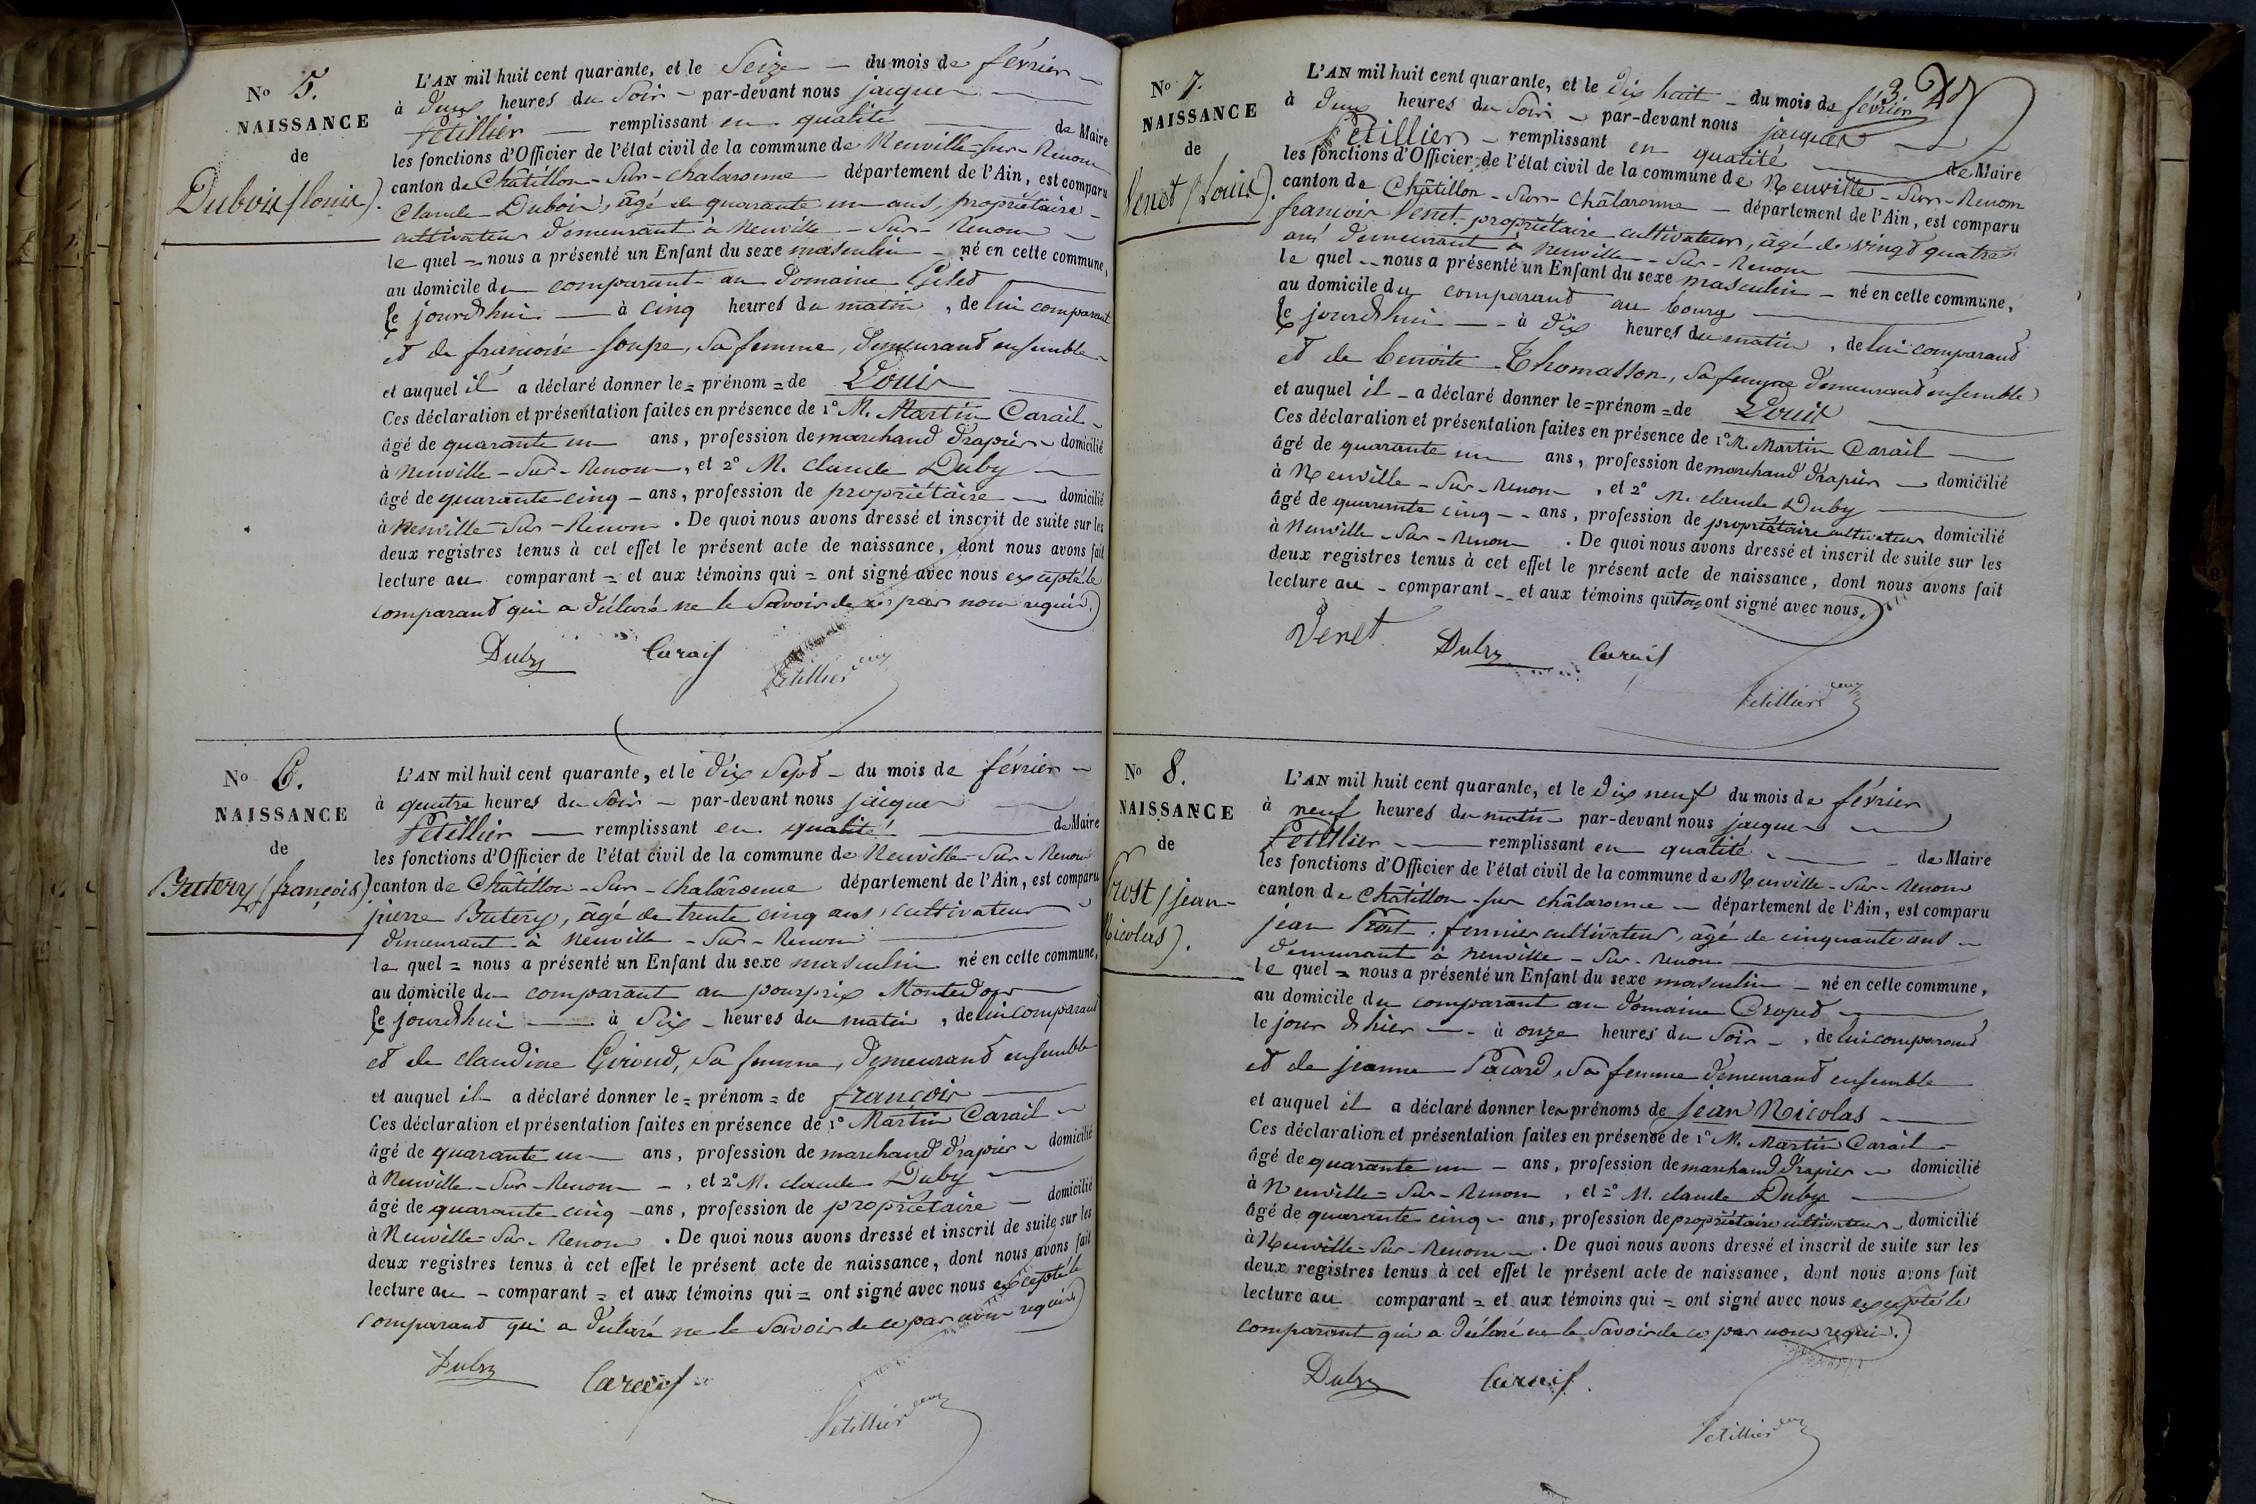 No 5.
NAISSANCE
de
Dubois (louis).
L'AN mil huit cent quarante, et le Seize — du mois de février —
à deux heures du Soir — par-devant nous jacques —
Petillier — remplissant en qualité — de Maire
les fonctions d'Officier de l'état civil de la commune de Neuville-Sur-Renom
canton de Châtillon-Sur-chalaronne département de l'Ain, est comparu
Claude Dubois, âgé de quarante un ans, propriétaire —
cultivateur demeurant à Neuville-Sur-Renom —
le quel = nous a présenté un Enfant du sexe masculin — né en cette commune,
au domicile du comparant au Domaine
le jourdhui — à cinq heures du matin, de lui comparant
et de francoise Soupe, Sa femme, demeurant ensemble
et auquel il a déclaré donner le = prénom = de Louis
Ces déclaration et présentation faites en présence de 1° M. Martin Carail —
âgé de quarante un ans, profession de marchand drapier — domicilié
à Neuville-Sur-Renom, et 2° M. claude Duby —
âgé de quarante-cinq — ans, profession de propriétaire — domicilié
à Neuville-Sur-Renom. De quoi nous avons dressé et inscrit de suite sur les
deux registres tenus à cet effet le présent acte de naissance, dont nous avons fait
lecture au comparant = et aux témoins qui = ont signé avec nous excepté le
comparant qui a déclaré ne le Savoir de ce par nous requis.
Duby Carail Petillier
No 6.
NAISSANCE
de
Butery (françois).
L'AN mil huit cent quarante, et le dix Sept — du mois de février —
à quatre heures du Soir — par-devant nous jacques —
Petillier — remplissant en qualité — de Maire
les fonctions d'Officier de l'état civil de la commune de Neuville-Sur-Renom
canton de Châtillon-Sur-chalaronne département de l'Ain, est comparu
pierre Butery, âgé de trente cinq ans, cultivateur
demeurant à Neuville-Sur-Renom —
le quel = nous a présenté un Enfant du sexe masculin né en cette commune,
au domicile du comparant au pourprix
le jourdhui — à Six — heures du matin, de lui comparant
et de claudine Giroud, Sa femme, demeurant ensemble
et auquel il a déclaré donner le = prénom = de francois
Ces déclaration et présentation faites en présence de 1° Martin Carail —
âgé de quarante un — ans, profession de marchand drapier — domicilié
à Neuville-Sur-Renom —, et 2° M. claude Duby —
âgé de quarante cinq — ans, profession de propriétaire — domicilié
à Neuville-Sur-Renom. De quoi nous avons dressé et inscrit de suite sur les
deux registres tenus à cet effet le présent acte de naissance, dont nous avons fait
lecture au — comparant = et aux témoins qui = ont signé avec nous excepté le
comparant qui a déclaré ne le Savoir de ce par nous requis
Duby Carail Petillier
3
No 7.
NAISSANCE
de
Venet (Louis).
L'AN mil huit cent quarante, et le dix huit — du mois de février
à deux heures du Soir — par-devant nous jacques
Petillier — remplissant en qualité — de Maire
les fonctions d'Officier de l'état civil de la commune de Neuville-Sur-Renom
canton de Châtillon-Sur-châlaronne — département de l'Ain, est comparu
francois Venet propriétaire cultivateur, âgé de vingt quatre
ans demeurant à Neuville-Sur-Renom —
le quel — nous a présenté un Enfant du sexe masculin — né en cette commune,
au domicile du comparant au bourg —
le jourdhui — à dix heures du matin, de lui comparant
et de benoite Thomasson, Sa femme demeurant ensemble
et auquel il — a déclaré donner le = prénom = de Louis
Ces déclaration et présentation faites en présence de 1° M. Martin Carail —
âgé de quarante un ans, profession de marchand drapier — domicilié
à Neuville-Sur-Renom, et 2° M. claude Duby —
âgé de quarante cinq — ans, profession de propriétaire cultivateur domicilié
à Neuville-Sur-Renom. De quoi nous avons dressé et inscrit de suite sur les
deux registres tenus à cet effet le présent acte de naissance, dont nous avons fait
lecture au — comparant — et aux témoins qui tous ont signé avec nous.
Venet Duby Carail
Petillier
No 8.
NAISSANCE
de
Prost (jean-
Nicolas).
L'AN mil huit cent quarante, et le dix neuf du mois de février
à neuf heures du matin — par-devant nous jacques —
Petillier — remplissant en qualité — de Maire
les fonctions d'Officier de l'état civil de la commune de Neuville-Sur-Renom
canton de Châtillon-sur châlaronne — département de l'Ain, est comparu
jean Prost, fermier cultivateur, âgé de cinquante ans —
demeurant à Neuville-Sur-Renom —
le quel = nous a présenté un Enfant du sexe masculin — né en cette commune,
au domicile du comparant au Domaine Croped —
le jour d'hier — à onze heures du Soir —, de lui comparant
et de jeanne Pacard, Sa femme demeurant ensemble
et auquel il a déclaré donner les prénoms de Jean Nicolas —
Ces déclaration et présentation faites en présence de 1° M. Martin Carail —
âgé de quarante un — ans, profession de marchand drapier — domicilié
à Neuville-Sur-Renom, et 2° M. claude Duby —
âgé de quarante cinq — ans, profession de propriétaire cultivateur — domicilié
à Neuville-Sur-Renom —. De quoi nous avons dressé et inscrit de suite sur les
deux registres tenus à cet effet le présent acte de naissance, dont nous avons fait
lecture au comparant = et aux témoins qui = ont signé avec nous excepté le
comparant qui a déclaré ne le Savoir de ce par nous requis.
Duby Carail
Petillier